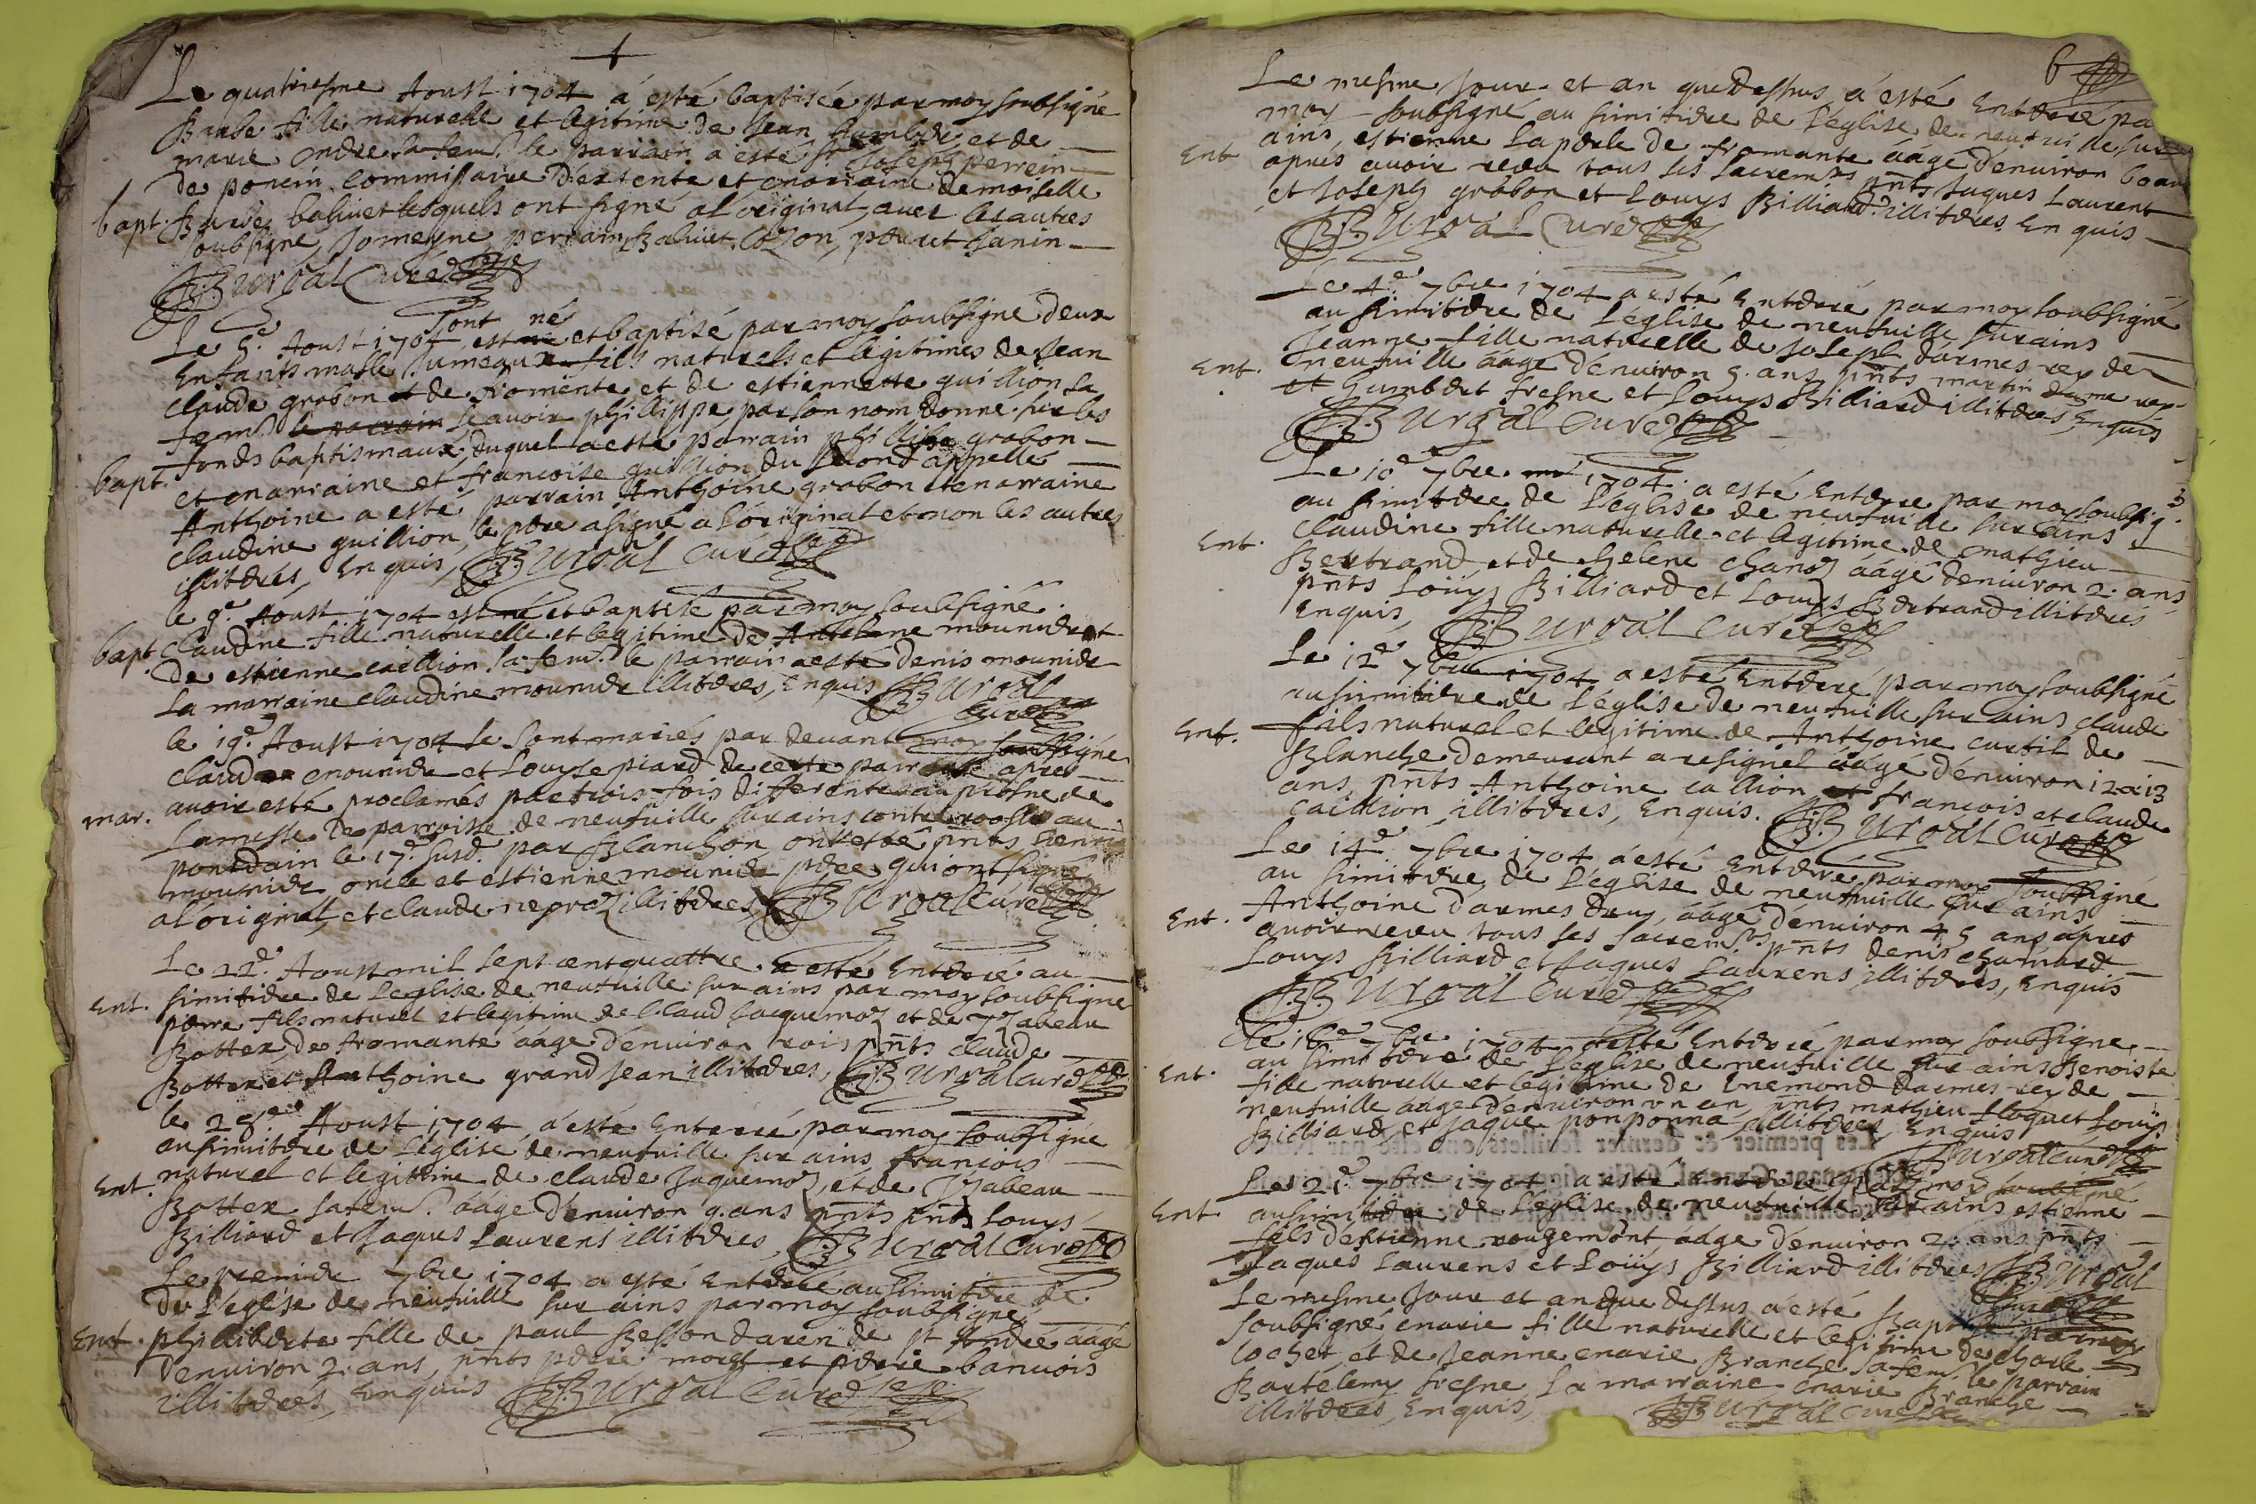 Le quatriesme Aoust 1704 a esté baptisée par moy soubsigné
Barbe fille naturelle et legitime de Jean humbert et de
marie ondre sa fem. le parrain a esté Sr Joseph perrein
de poncin commissaire d'extente et marraine demoiselle
bapt. Barbe bahuet lesquels ont signé al original, avec les autres
soubsigné, perrain, Bahuet, Cozon, janin
B Curé
sont né
Le 5e Aoust 1704 est né et baptisé par moy soubsigné deux
Enfants masle Jumeaux fils naturels et legitimes de Jean
claude grobon et de fromente et de estiennette guillion sa
fem. le parrain scavoir phillippe par son nom donné sur les
fonds baptismaux, duquel a esté parrain phillibe grobon
bapt. et marraine et francoise guillion du second appellé
Anthoine a esté parrain Anthoine grobon et marraine
claudine guillion, le pere a signé a l'original et non les autres
illiteres, Enquis, B curé
le 9e Aoust 1704 est né et baptisé par moy soubsigné
bapt. claudine fille naturelle et legitime de Antelme mounier et
de estienne caillion sa fem. le parrain a esté denis mounier
La marraine claudine mounier illiteres, Enquis B
Curé
le 19e Aoust 1704 se sont mariés par devant moy soubsigné
claude mounier et Louyse piard de cette parroisse apres
avoir esté proclamés par trois fois differentes au prosne de
mar. La messe de parroisse de neufuille sur ains controollé au
pontdain le 17e susd. par Blanchon ont esté pnts henri
mounier oncle et estienne mounier pere qui ont signé
al original, et claude illiteres B Curé
Le 22e Aoust mil sept cent quattre a esté Enterré au
Ent. simitiere de Leglise de neufuille sur ains par moy soubsigné
pierre fils naturel et legitime de Claud Jacquemoz et de yzabeau
Botter de fromante aagé denuiron trois pnts claude
Botter et Anthoine grand jean illiteres, B curé
le 28e Aoust 1704 a esté Enterré par moy soubsigné
au simitiere de Leglise de neufuille sur ains francois
Ent. naturel et legittime de claude Jaquemoz, et de Izabeau
Botter sa fem. aagé denuiron 9. ans pnts pnts Louys
Billiard et Jaques Laurens illiteres, B Curé
Le premier 7bre 1704 a esté Enterré au simitiere de
de Leglise de neufuille sur ains par moy soubsigné
Ent. phillibrte fille de paul Besson daren de st André aagé
denuiron 2. ans, pnts pierre morel et pierre banuois
illiteres, Enquis B Curé
6
Le mesme Jour et an que dessus a esté Enterré pa
moy soubsigné au simitiere de Leglise de neufuille sur
ains, estienne Laperle de fromante aagé denuiron 60 an
Ent apres avoir receu tous ses sacrem. pnts Jaques Laurent
et Joseph grobon et Louys Billiard illiteres Enquis
B Curé
Le 4e 7bre 1704 a esté Enterré par moy soubsigné
au simitiere de Leglise de neufuille sur ains
Jeanne fille naturelle de Joseph darmes rey de
Ent. neufuille aagé denuiron 5. ans, pnts martin darme rey
et humbert fresne et Louys Billiard illiteres, Enquis
B Curé
Le 10e 7bre 1704 a esté Enterré par moy soubsig
au simitiere de Leglise de neufuille sur ains
Ent. Claudine fille naturelle et legitime de mathieu
Bertrand et de helene Chanoz aagé denuiron 2. ans
pnts Loüys Billiard et Louys Bertrand illiteres
Enquis, B curé
Le 12e 7bre 1704 a esté Enterré par moy soubsigné
au simitiere de Leglise de neufuille sur ains claude
Ent. fils naturel et legitime de Anthoine curtil de
Blanche demeurant a resignel aagé denuiron 12 a 13
ans, pnts Anthoine caillion et francois et claude
caillion, illiteres, Enquis. B curé
Le 14e 7bre 1704 a esté Enterré par moy soubsigné
au simitiere de Leglise de neufuille sur ains
Ent. Anthoine darmes druy, aagé denuiron 45 ans apres
avoir receu tous ses sacrem. pnts denis chamard
Louys Billiard et Jaques Laurens illiteres, Enquis
B Curé
Le 16e 7bre 1704 a esté Enterré par moy soubsigné
au simitiere de Leglise de neufuille sur ains Benoiste
Ent. fille naturelle et legitime de Enemond darmes rey de
neufuille aagé denuiron un an, pnts mathieu floquet Louys
Billiard, et Jaque ponponna illiteres Enquis
B curé
Le 21e 7bre 1704 a esté Enterré par moy soubsigné
Ent au simitiere de Leglise de neufuille sur ains estienne
fils d'estienne rougemont aagé denuiron 2. ans pnts
Jaques Laurens et Loüys Billiard illiteres B
Curé
Le mesme Jour et an que dessus a esté Baptisé par moy
soubsigné marie fille naturelle et legitime de Charle
Cochet et de Jeanne marie Branche sa fem. le parrain
Bartelemy fresne, La marraine marie Branche
illiteres, Enquis, B Curé